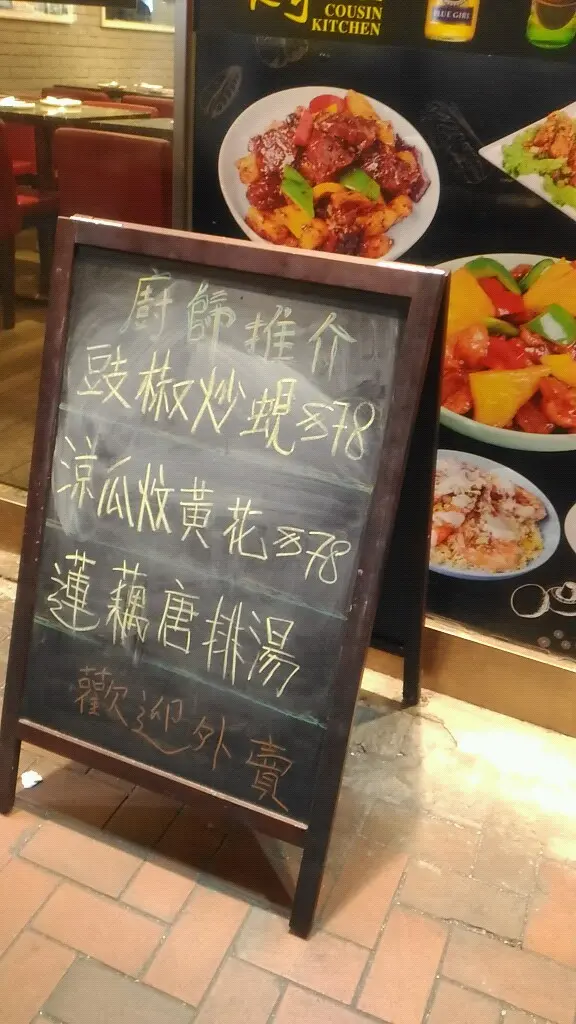 COUSIN
KITCHEN
BLUE GIRL
廚師推介
豉椒炒蜆$78
涼瓜炆黃花$78
蓮藕唐排湯
歡迎外賣